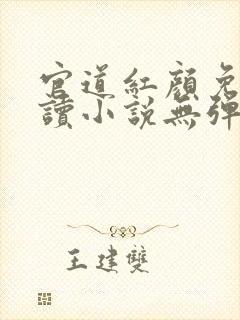 官道紅顏免
讀小說無彈
王建雙